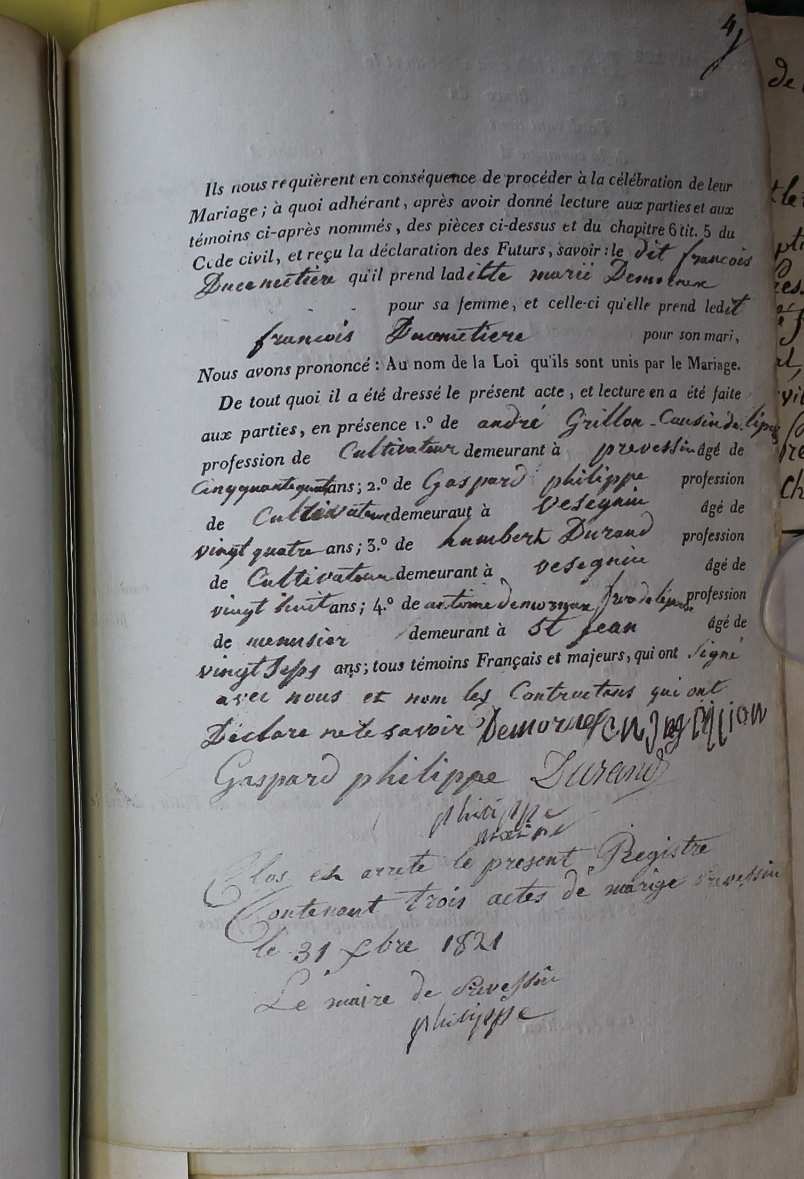 4
Ils nous requièrent en conséquence de procéder à la célébration de leur
Mariage; à quoi adhérant, après avoir donné lecture aux parties et aux
témoins ci-après nommés, des pièces ci-dessus et du chapitre 6 tit. 5 du
Code civil, et reçu la déclaration des Futurs, savoir: le dit françois
Ducimetiere qu'il prend ladette marie Demornex
pour sa femme, et celle-ci qu'elle prend ledit
françois Ducimetiere pour son mari,
Nous avons prononcé: Au nom de la Loi qu'ils sont unis par le Mariage.
De tout quoi il a été dressé le présent acte, et lecture en a été faite
aux parties, en présence 1.º de andré Grillon Cousin de
profession de Cultivateur demeurant à prevessin âgé de
Cinquante quatre ans; 2.º de Gaspard philippe profession
de Cultivateur demeurant à vesegnin âgé de
vingt quatre ans; 3.º de humbert Durand profession
de Cultivateur demeurant à vesegnin âgé de
vingt huit ans; 4.º de antoine demornex profession
de menusier demeurant à St jean âgé de
vingt Seps ans; tous témoins Français et majeurs, qui ont Signé
avec nous et nom les Contractans qui ont
Déclare ne le savoir Demornex
Gaspard philippe Durand
philippe
maire
Clos et arrete le present Registre
Contenant trois actes de marige Prevessin
le 31 xbre 1821
Le maire de Prevessin
philippe